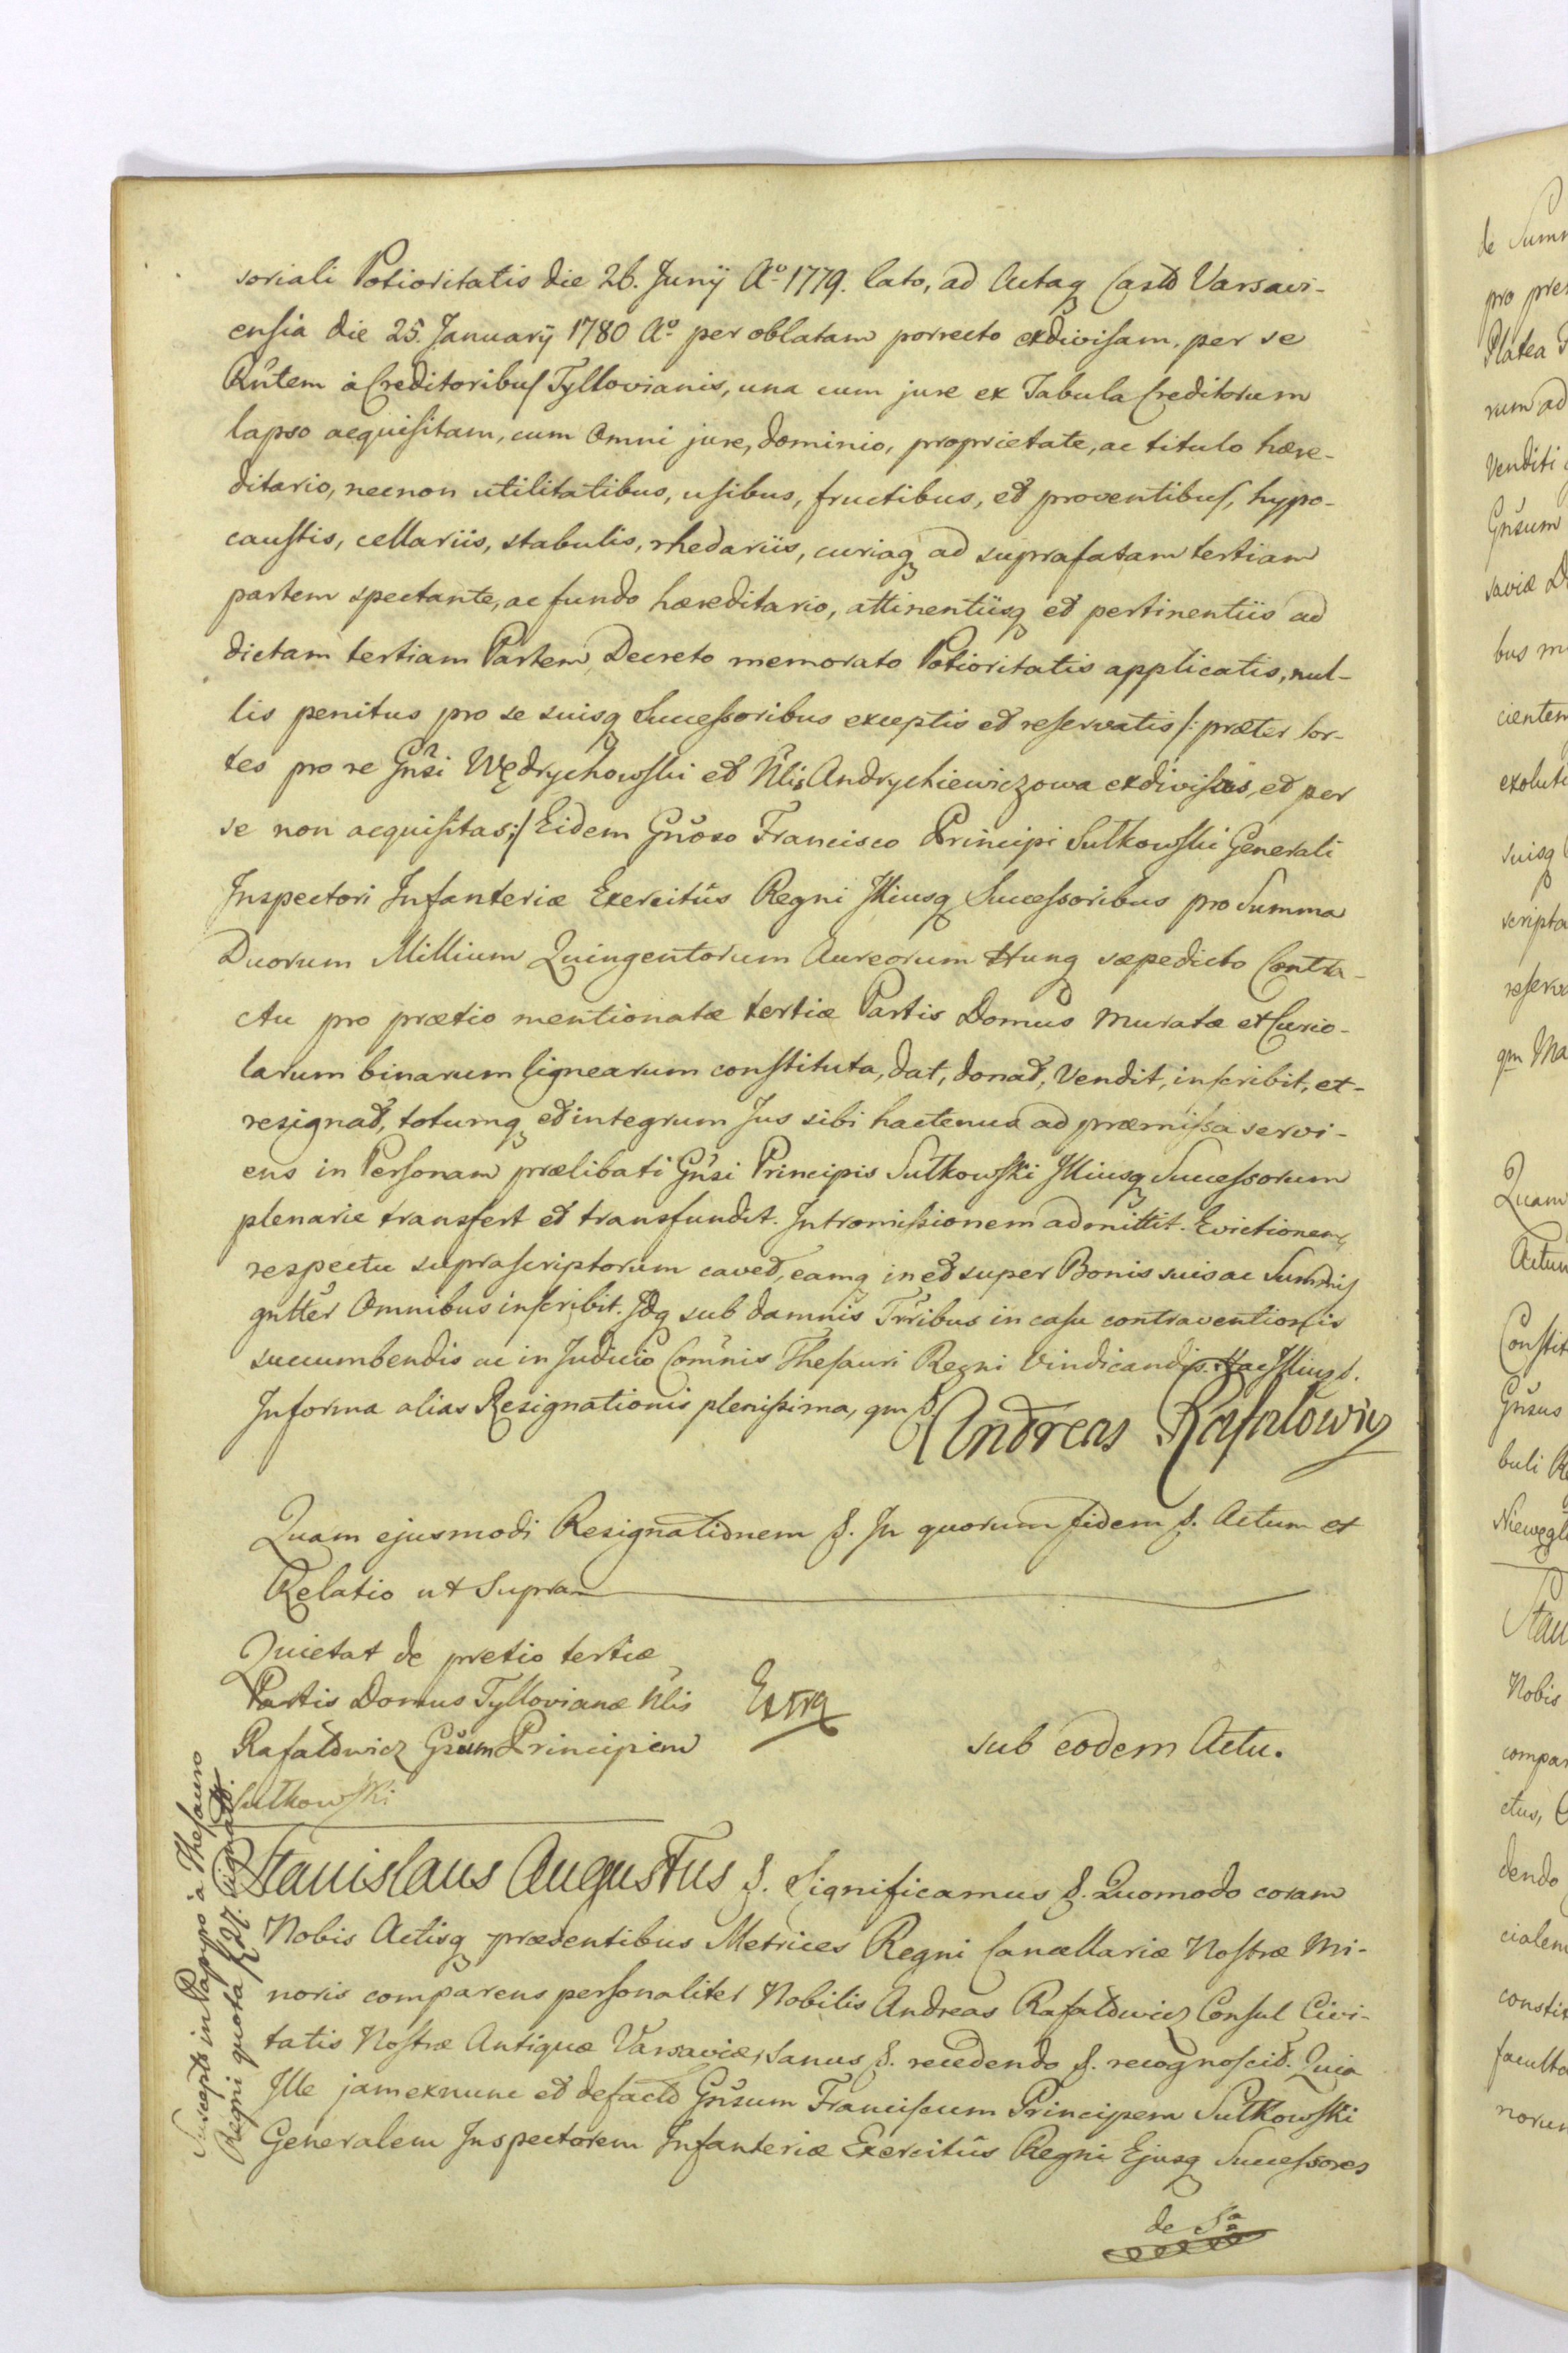 soriali Potioritatis die 26. Junÿ Aº 1779. lato, ad Actaq Castr Varsavi-
ensia die 25. Januarÿ 1780 Aº per oblatam porrecto exdivisam, per se
Autem à Creditoribus Tyllovianis, una cum jure ex Tabula Creditorum
lapso acquisitam, cum Omni jure, dominio, proprietate, ac titulo hære-
ditario, necnon utilitatibus, usibus, fructibus, et proventibus, hypo-
caustis, cellariis, stabulis, rhedariis, curiaq ad suprafatam tertiam
partem spectante, ac fundo hæreditario, attinentiisq et pertinentiis ad
dictam tertiam Partem Decreto memorato Potioritatis applicatis, nul-
lis penitus pro se suisq Successoribus exceptis et reservatis /: præter sor-
tes pro re Gnsi Wędrychowski et Nlis Andrychiewiczowa exdivisas, et per
se non acquisitas :/ Eidem Gnoso Francisco Principi Sułkowski Generali
Inspectori Infanteriæ Exercitûs Regni Illiusq Successoribus pro Summa
Duorum Millium Quingentorum Aureorum Hung sæpedicto Contra-
ctu pro prætio mentionatæ tertiæ Partis Domus Muratæ et Curio-
larum binarum lignearum constituta, dat, donat, Vendit, inscribit, et-
resignat, totumq et integrum Jus sibi hactenus ad præmissa servi-
ens in Personam prælibati Gnsi Principis Sułkowski Illiusq Successorum
plenarie transfert et transfundit. Intromissionem admittit. Evictionem
respectu suprascriptorum cavet, eamq in et super Bonis suis ac Summis
gnltter Omnibus inscribit. Idq sub damnis Trribus in casu contraventionis
succumbendis ac in Judicio Commnis Thesauri Regni Vindicandis. Hac Illiusq
In forma alias Resignationis plenissima, qm
Andreas Rafałowicz
Quam ejusmodi Resignationem &. In quorum fidem &. Actum et
Relatio ut Supra
Quietat de pretio tertiæ
Partis Domus Tyllovianæ Nlis
Rafałowicz Gsum Principem
Sułkowski
Extra
sub eodem Actu.
Suscepto in Rappro à Thesauro
Regni quota 27. signato.
Stanislaus Augustus &. Significamus &. Quomodo coram
Nobis Actisq præsentibus Metrices Regni Cancellariæ Nostræ Mi-
noris comparens personaliter Nobilis Andreas Rafałowicz Consul Civi-
tatis Nostræ Antiquæ Varsaviæ, sanus &. recedendo &. recognoscit. Quia
Ille jam exnunc et defacto Gnsum Franciscum Principem Sułkowski
Generalem Inspectorem Infanteriæ Exercitûs Regni Ejusq Successores
de Sª